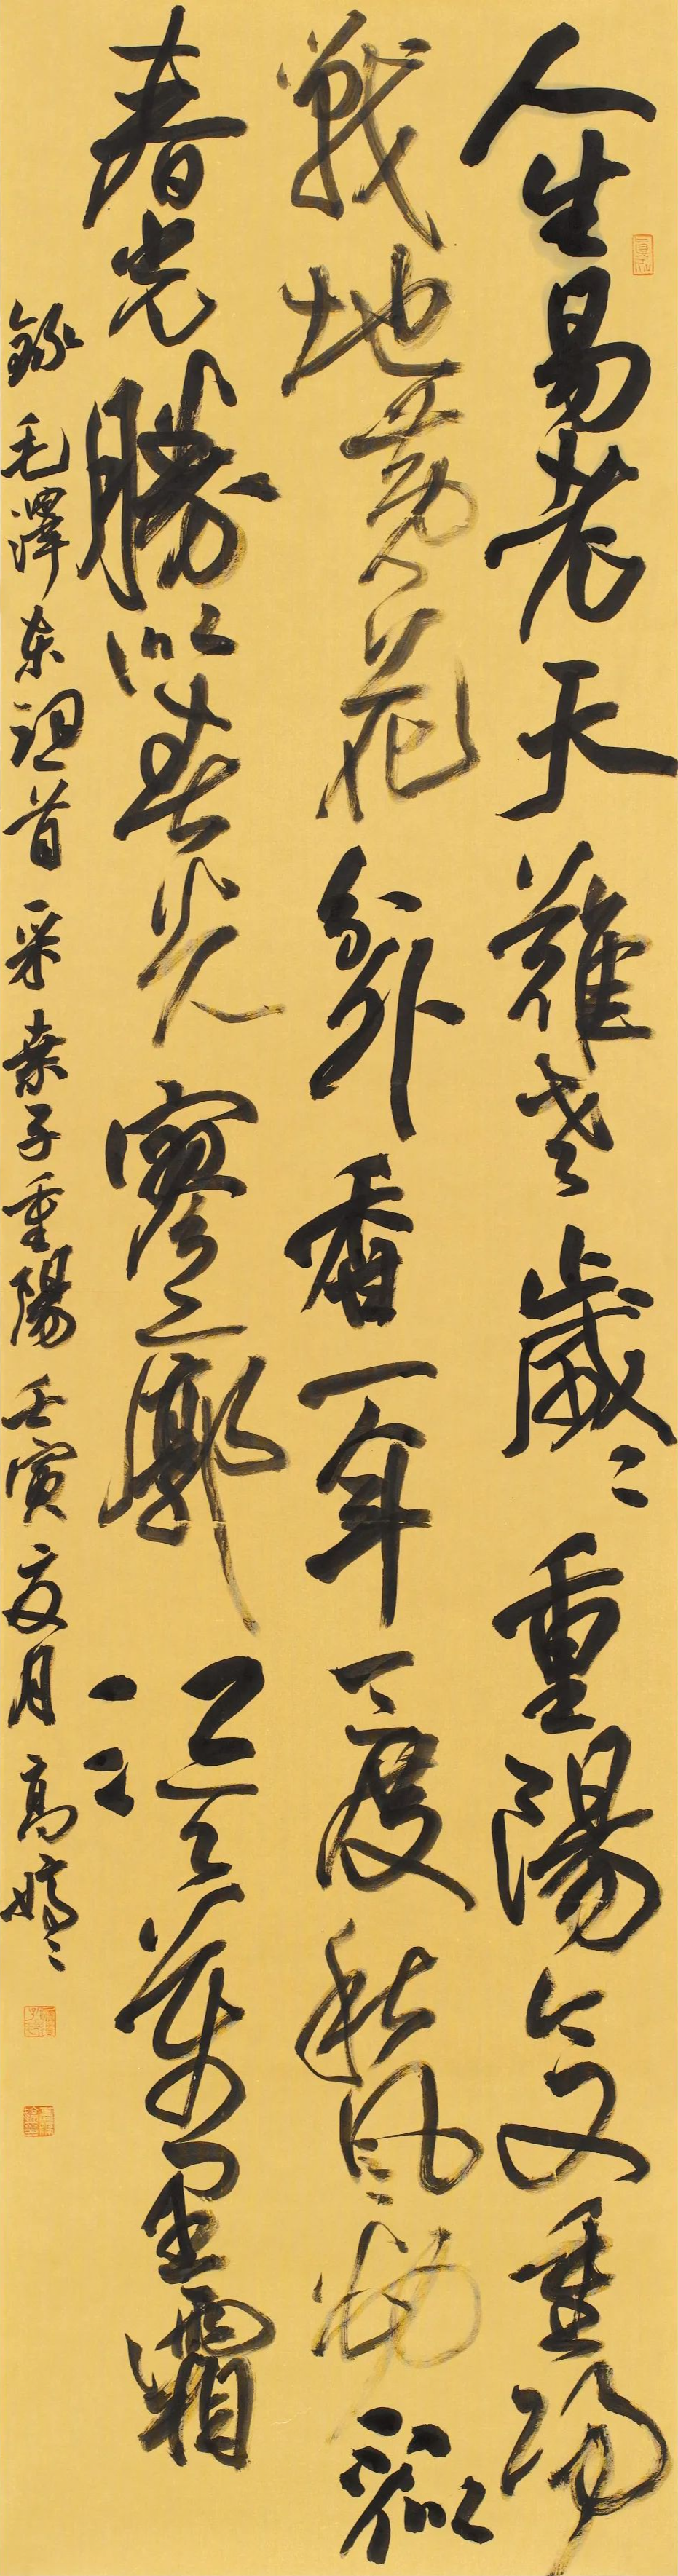 人生易老天難老歲〻重陽今又重陽
戰地黃花分外香一年一度秋風勁不似
春光勝似春光寥廓江天萬里霜
錄毛澤東詞首采桑子重陽壬寅夏月高嬌〻